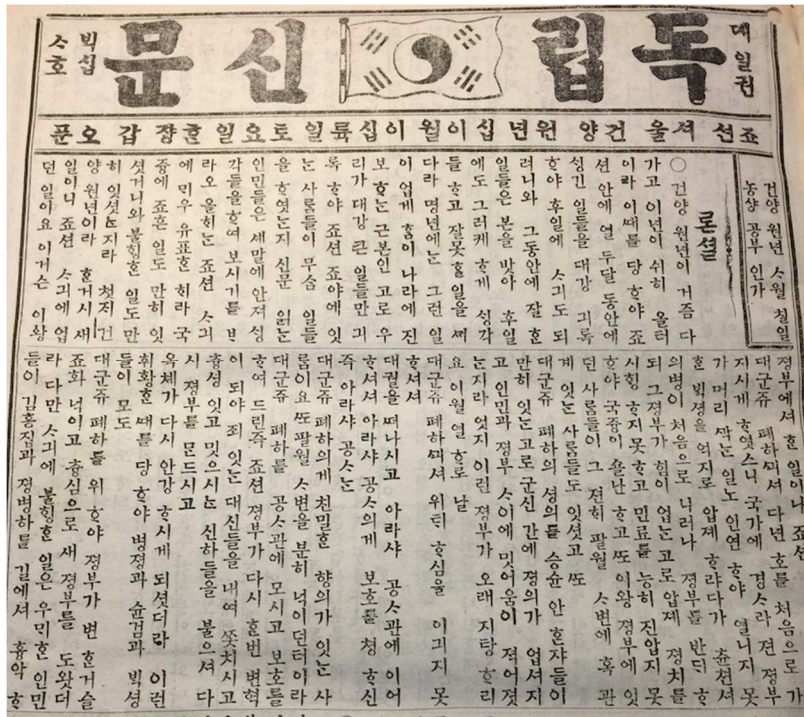 뎨일권
독립신문
ᄇᆡᆨ십ᄉᆞ호
죠션 셔울 건양 원년 십이월 이십륙일 토요일 ᄒᆞᆫ쟝 갑 오푼
건양 원년 ᄉᆞ월 칠일
농샹 공부 인가
론셜
○ 건양 원년이 거즘 다
가고 이년이 쉬히 올터
이라 이ᄯᅢ를 당 ᄒᆞ야 죠
션 안에 열 두달 동안에
싱긴 일들을 대강 긔록
ᄒᆞ야 후일에 ᄉᆞ긔도 되
려니와 그동안에 잘 ᄒᆞᆫ
일들은 본을 밧아 후일
에도 그러케 ᄒᆞ게 ᄉᆡᆼ각
들 ᄒᆞ고 잘못ᄒᆞᆯ일을 ᄭᆡ
다라 명년에ᄂᆞᆫ 그런 일
이 업게 ᄒᆞᆷ이 나라에 진
보ᄒᆞᄂᆞᆫ 근본인 고로 우
리가 대강 큰 일들만 긔
록 ᄒᆞ야 죠션 죠야에 잇
ᄂᆞᆫ 사ᄅᆞᆷ들이 무슴 일들
을 ᄒᆞ엿ᄂᆞᆫ지 신문 읽ᄂᆞᆫ
인민들은 셰말에 안져 ᄉᆡᆼ
각들을ᄒᆞ여 보시기를 ᄇᆞ
라오 올ᄒᆡᄂᆞᆫ 죠션 ᄉᆞ긔
에 ᄆᆡ우 유표ᄒᆞᆫ ᄒᆡ라 국
즁에 죠흔 일도 만히 잇
셧거니와 불ᄒᆡᆼᄒᆞᆫ 일도 만
히 잇셧ᄂᆞᆫ지라 첫ᄌᆡ 건
양 원년이라 ᄒᆞᆫ거시 새
일이니 죠션 ᄉᆞ긔에 업
던 일이요 이거슨 이왕
졍부에셔 ᄒᆞᆫ 일이나 죠션
대군쥬 폐하ᄭᅴ셔 다년 호를 쳐음으로 가
지시게 ᄒᆞ엿스니 국가에 경ᄉᆞ라 젼 졍부
가 머리 ᄭᅡᆨᄂᆞᆫ 일노 인연 ᄒᆞ야 열니지 못
ᄒᆞᆫ ᄇᆡᆨ셩을 억지로 압졔 ᄒᆞ랴다가 츈쳔셔
의병이 처음으로 니러나 졍부를 반ᄃᆡ ᄒᆞ
되 그졍부가 힘이 업ᄂᆞᆫ고로 압졔 졍치를
시ᄒᆡᆼ ᄒᆞ지못ᄒᆞ고 민료를 능히 진압지 못
ᄒᆞ야 국즁이 슐난 ᄒᆞ고 ᄯᅩ 이왕 졍부에 잇
던 사ᄅᆞᆷ들이 그 젼ᄒᆡ 팔월 ᄉᆞ변에 혹 관
계 잇ᄂᆞᆫ 사ᄅᆞᆷ들도 잇셧고 ᄯᅩ
대군쥬 폐하의 셩의를 승슌 안 ᄒᆞᆫ쟈들이
만히 잇ᄂᆞᆫ고로 군신 간에 졍의가 업셔지
고 인민과 졍부 ᄉᆞ이에 밋어움이 젹어졋
ᄂᆞᆫ지라 엇지 이런 졍부가 오래 지탕 ᄒᆞ리
요 이월 열ᄒᆞ로 날
대군쥬 폐하ᄭᅴ셔 위ᄐᆡ ᄒᆞ심을 이긔지 못
ᄒᆞ셔
대궐을 ᄯᅥ나시고 아라샤 공ᄉᆞ관에 이어
ᄒᆞ셔셔 아라샤 공ᄉᆞ의게 보호를 쳥 ᄒᆞ신
즉 아라샤 공ᄉᆞᄂᆞᆫ
대군쥬 폐하의게 친밀ᄒᆞᆫ 향의가 잇ᄂᆞᆫ 사
ᄅᆞᆷ이요 ᄯᅩ 팔월 ᄉᆞ변을 분히 넉이던터이라
대군쥬 폐하를 공ᄉᆞ관에 모시고 보호를
ᄒᆞ여 드린즉 죠션 졍부가 다시 ᄒᆞᆫ번 변혁
이 되야 죄 잇ᄂᆞᆫ 대신들을 내여 ᄶᅩᆺ치시고
츙셩 잇고 밋으시ᄂᆞᆫ 신하들을 불으셔 다
시 졍부를 문드시고
옥쳬가 다시 안강 ᄒᆞ시게 되셧더라 이런
휘황ᄒᆞᆫ ᄯᅢ를 당 ᄒᆞ야 병졍과 슌검과 ᄇᆡᆨ셩
들이 모도
대군쥬 폐하를 위 ᄒᆞ야 졍부가 변 ᄒᆞᆫ거슬
죠화 넉이고 츙심으로 새 졍부를 도왓더
라 다만 ᄉᆞ긔에 불ᄒᆡᆼᄒᆞᆫ 일은 우ᄆᆡᄒᆞᆫ 인민
들이 김홍집과 졍병하를 길에셔 흉악 ᄒᆞ